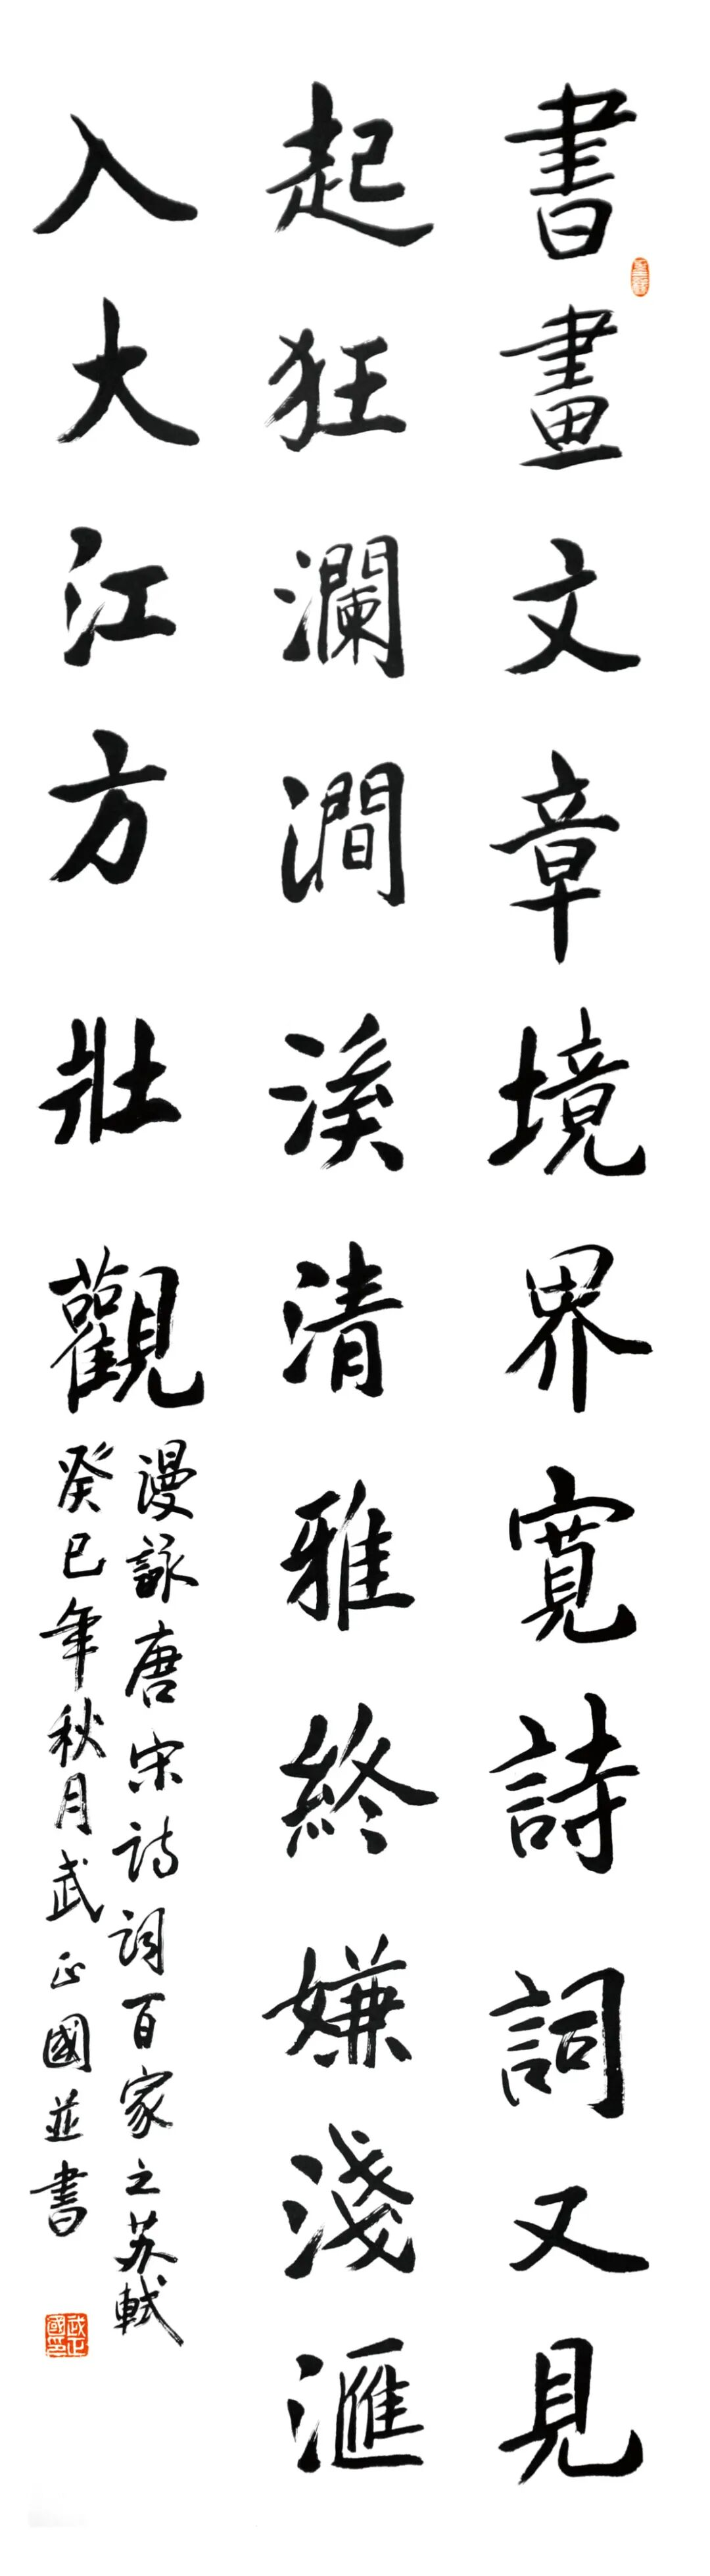 書畫文章境界寬詩詞又見
起狂瀾澗溪清雅終嫌淺滙
入大江方壯觀
漫詠唐宋詩詞百家之苏軾
癸巳年秋月武正國並書
武正國印